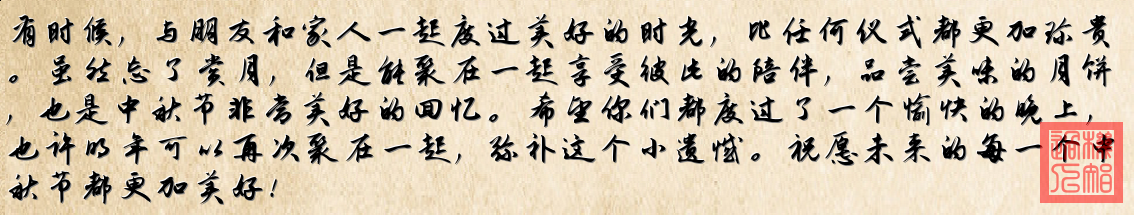 有时候，与朋友和家人一起度过美好的时光，比任何仪式都更加珍贵
。虽然忘了赏月，但是能聚在一起享受彼此的陪伴，品尝美味的月饼
，也是中秋节非常美好的回忆。希望你们都度过了一个愉快的晚上，
也许明年可以再次聚在一起，弥补这个小遗憾。祝愿未来的每一个中
秋节都更加美好！